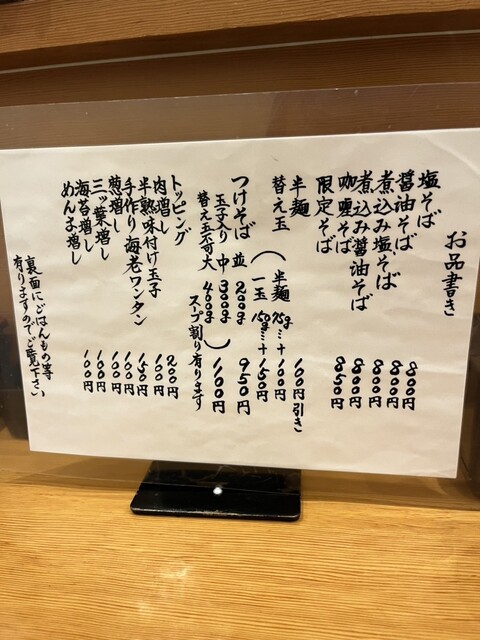 お品書き
塩そば 800円
醤油そば 800円
煮込み塩そば 800円
煮込み醤油そば 800円
咖喱そば 850円
限定そば
半麺 100円引き
替え玉(半麺75g…+100円
一玉150g…+150円
つけそば 並 200g 950円
玉子入り 中 300g
替え玉不可 大 400g) 1100円
スープ割り有ります
トッピング
肉増し 200円
半熟味付け玉子 100円
手作り海老ワンタン 150円
葱増し 100円
三ッ葉増し 100円
海苔増し 100円
めんま増し 100円
裏面にごはんもの等
有りますのでご覧下さい